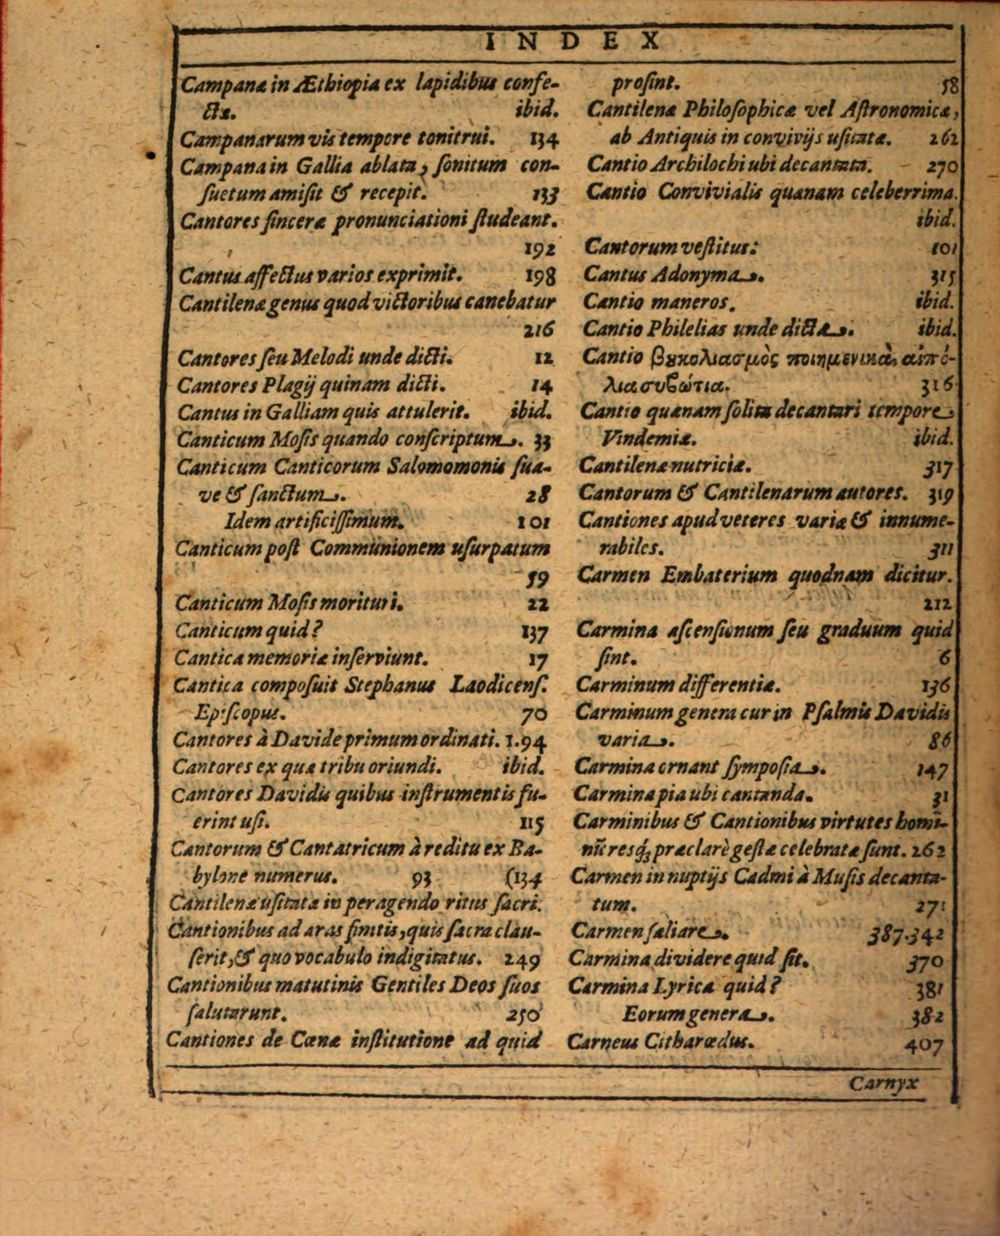 INDEX
Campanæ in Æthiopia ex lapidibus confe-
ctæ. ibid.
Campanarum vis tempore tonitrui. 134
Campana in Gallia ablata, sonitum con-
suetum amisit & recepit. 133
Cantores sinceræ pronunciationi studeant.
192
Cantus affectus varios exprimit. 198
Cantilenæ genus quod victoribus canebatur
216
Cantores seu Melodi unde dicti. 12
Cantores Plagij quinam dicti. 14
Cantus in Galliam quis attulerit. ibid.
Canticum Mosis quando conscriptum. 33
Canticum Canticorum Salomomonis sua-
ve & sanctum. 28
Idem artificissimum. 101
Canticum post Communionem usurpatum
59
Canticum Mosis morituri. 22
Canticum quid? 137
Cantica memoriæ inserviunt. 17
Cantica composuit Stephanus Laodicens.
Episcopus. 70
Cantores à Davide primum ordinati. 1.94
Cantores ex qua tribu oriundi. ibid.
Cantores Davidis quibus instrumentis fu-
erint usi. 115
Cantorum & Cantatricum à reditu ex Ba-
bylone numerus. 93 (134
Cantilenæ usitatæ in peragendo ritus sacri.
Cantionibus ad aras finitis, quis sacra clau-
serit, & quo vocabulo indigitatus. 249
Cantionibus matutinis Gentiles Deos suos
salutarunt. 250
Cantiones de Cœnæ institutione ad quid
prosint. 58
Cantilenæ Philosophicæ vel Astronomicæ,
ab Antiquis in convivijs usitatæ. 262
Cantio Archilochi ubi decantata. 270
Cantio Convivialis quænam celeberrima.
ibid.
Cantorum vestitus: 101
Cantus Adonyma. 315
Cantio maneros. ibid.
Cantio Philelias unde dicta. ibid.
Cantio βȣκολιασμὸς ποιημενικὰ, αἰπό-
λια συβώτια. 316
Cantio quænam solita decantari tempore
Vindemiæ. ibid.
Cantilenæ nutriciæ. 317
Cantorum & Cantilenarum autores. 319
Cantiones apud veteres variæ & innume-
rabiles. 311
Carmen Embaterium quodnam dicitur.
212
Carmina ascensionum seu graduum quid
sint. 6
Carminum differentiæ. 136
Carminum genera cur in Psalmis Davidis
varia. 86
Carmina ornant symposia. 147
Carmina pia ubi cantanda. 31
Carminibus & Cantionibus virtutes homi-
nũ resq; præclarè gestæ celebratæ sunt. 262
Carmen in nuptijs Cadmi à Musis decanta-
tum. 271
Carmen saliare. 387.342
Carmina dividere quid sit. 370
Carmina Lyrica quid? 381
Eorum genera. 382
Carneus Citharœdus. 407
Carnyx